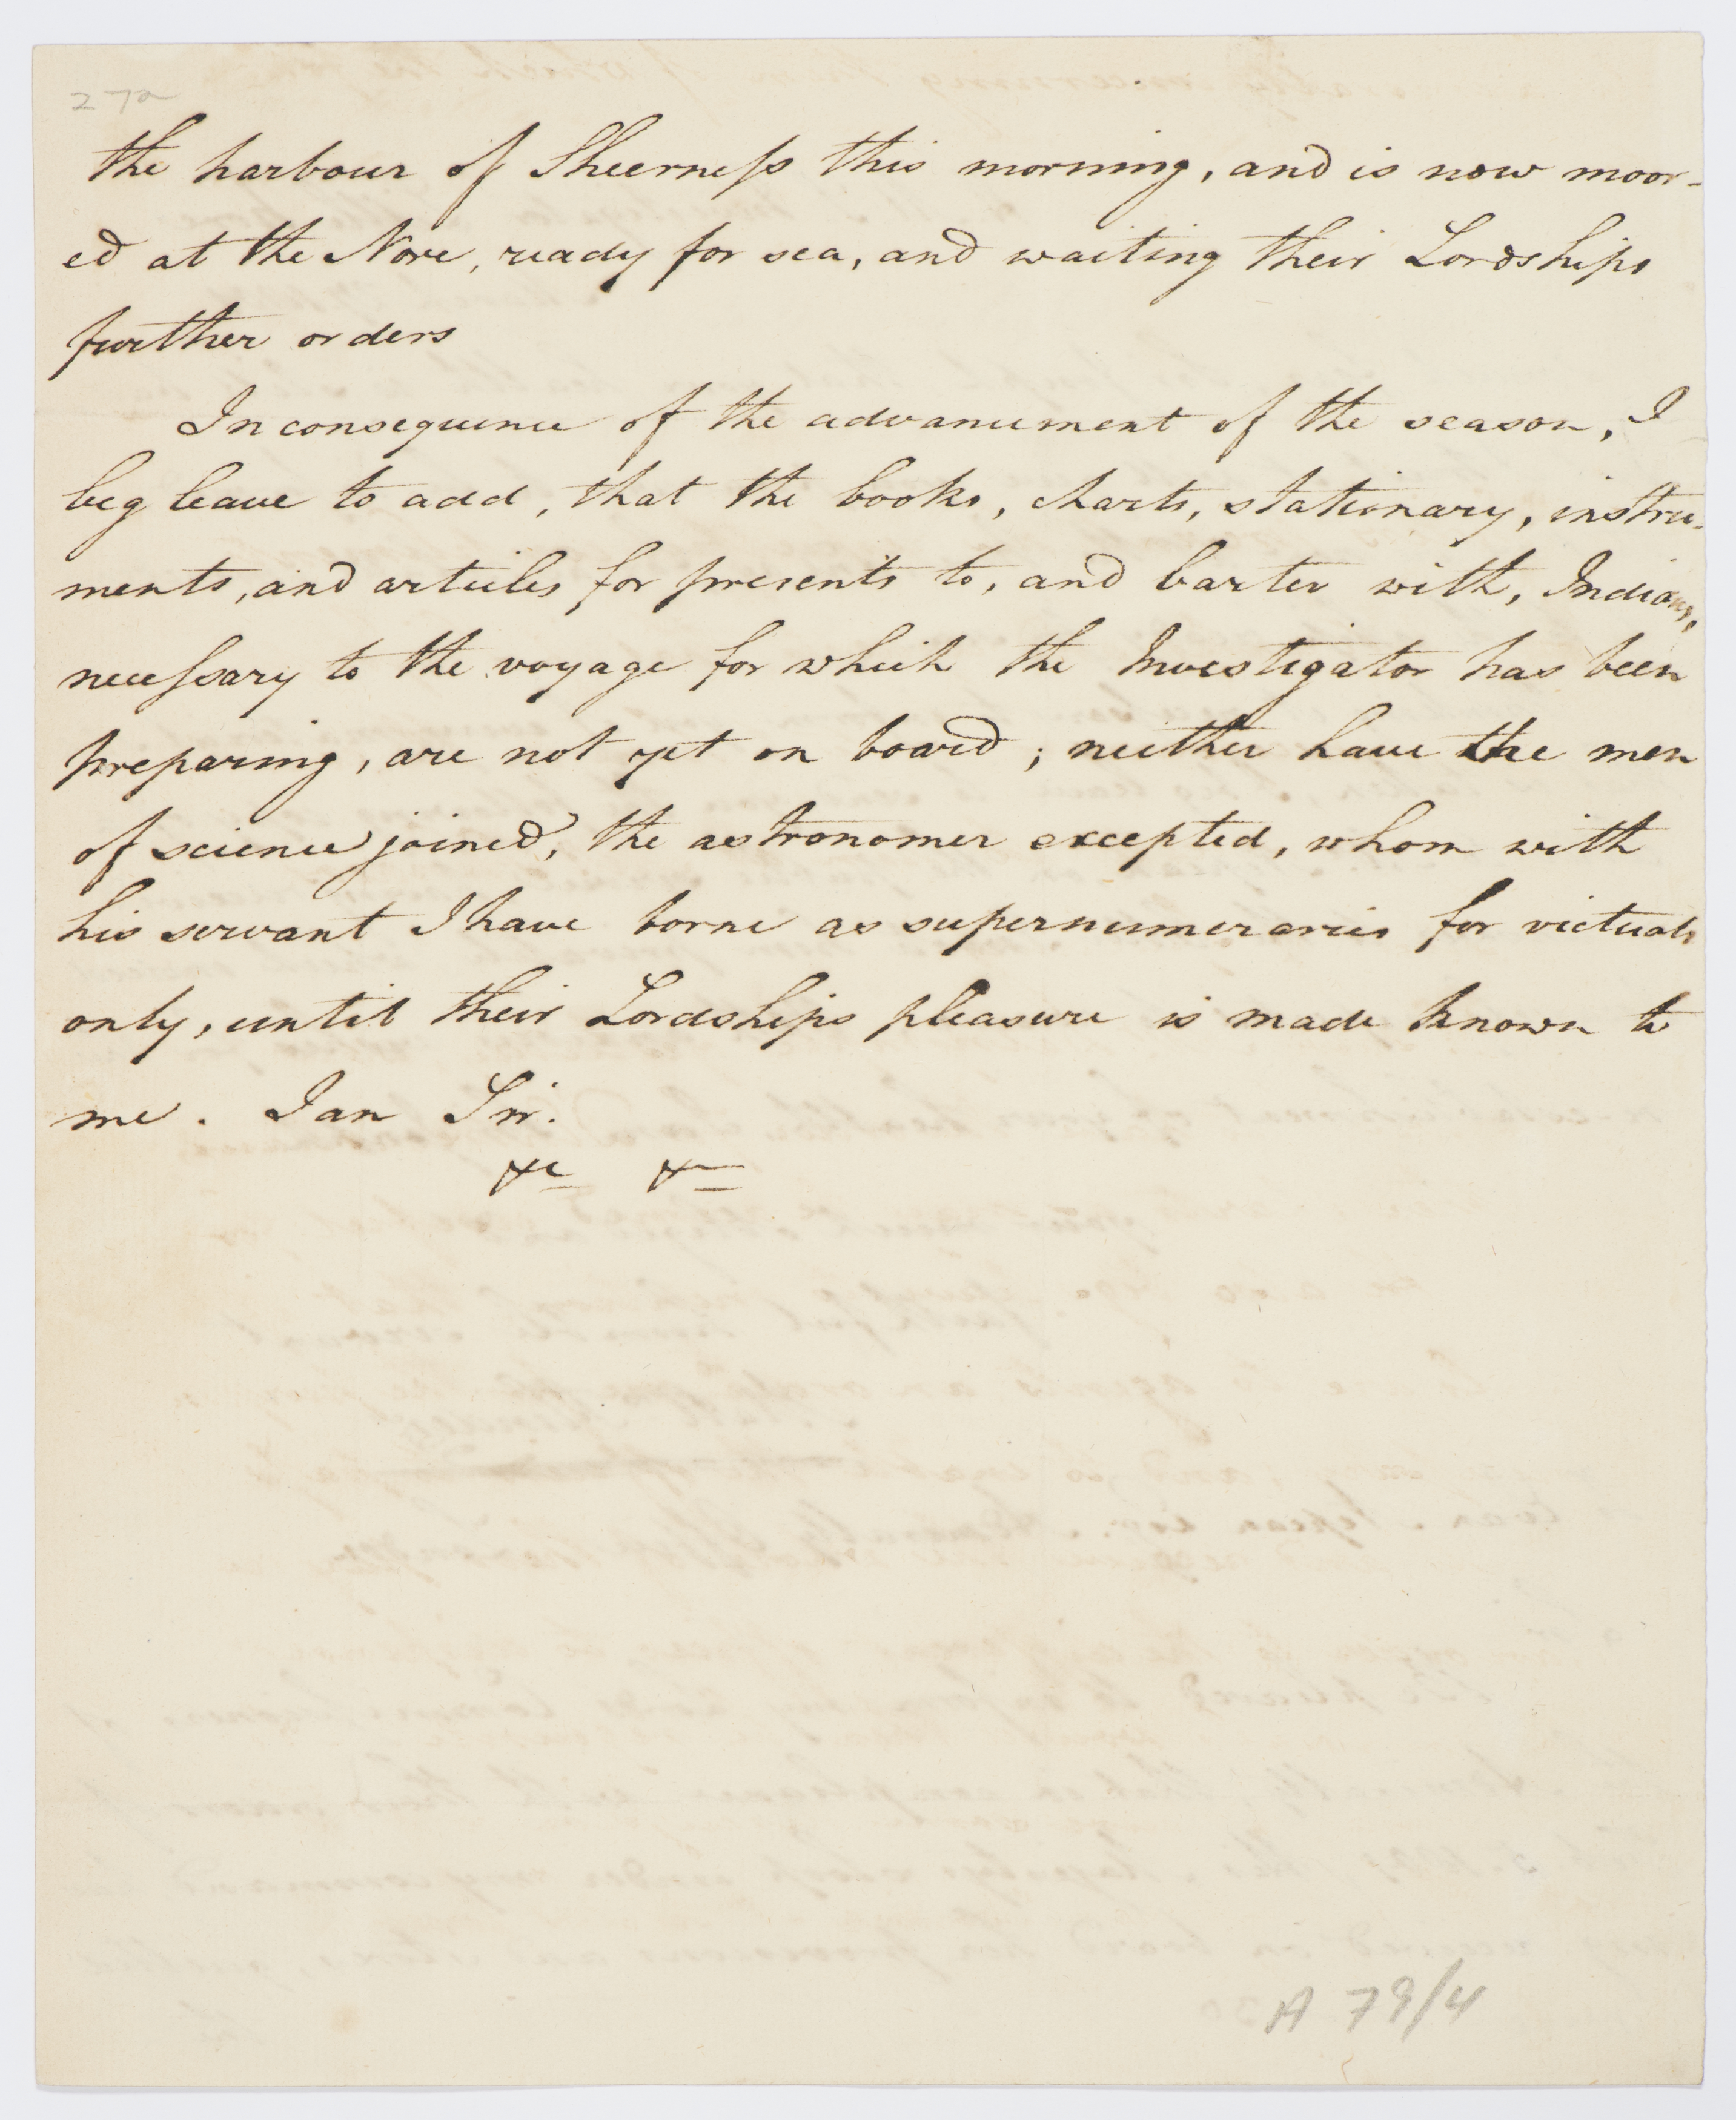 27a
the harbour of Sheerness this morning, and is now moor-
ed at the Nore, ready for sea, and waiting their Lordships
further orders
In consequence of the advancement of the season, I
beg leave to add, that the books, charts, stationary, instru-
ments, and articles for presents to, and barter with, Indians,
necessary to the voyage for which the Investigator has been
preparing, are not yet on board; neither have the men
of science joined, the astronomer excepted, whom with
his servant I have borne as supernumeraries for victuals
only, until their Lordships pleasure is made known to
me. I am Sir.
&c &c
A 79/4